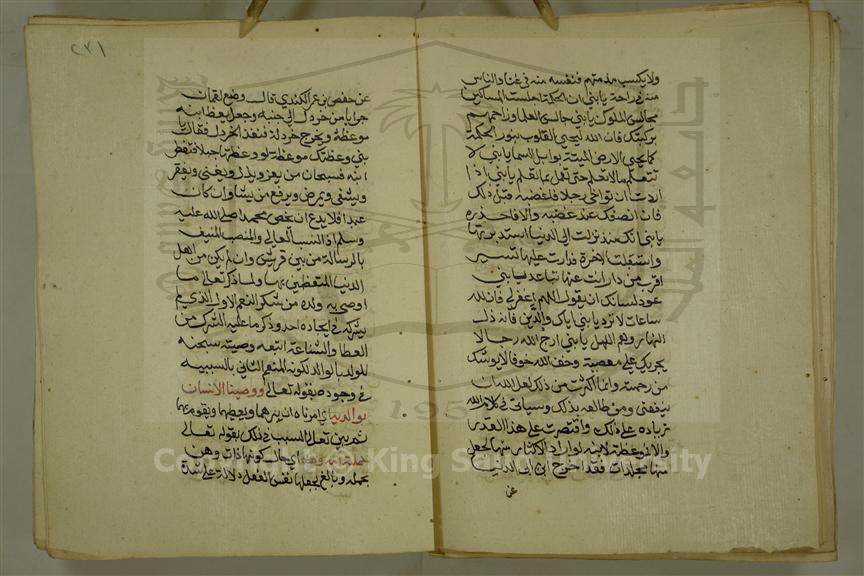 ولا يكسب مذمتهم فنفسه منه في عناء والناس
منه في راحة يا بني ان الحكمة اجلست المساكين
مجالس الملوك يا بني جالس العلما وزاحمهم
بركبتك فان الله ليحيي القلوب بنور الحكمة
كما يحيي الارض الميتة بوابل السما يا بني لا
تتعلم ما لا تعلم حتى تعمل بما تعلم يا بني اذا
اردت ان تواخي رجلا فاغضبه قبل ذلك
فان انصفك عند غضبه والا فاحذره
يا بني انك منذ نزلت الى الدنيا استدبرتها
واستقبلت الاخرة فدار انت عليها تسير
اقرب من دار انت عنها تباعد يا بني
عود لسانك ان يقول اللهم اغفر لي فان لله
ساعات لا ترد يا بني اياك والدين فانه ذل
النهار وهم الليل يا بني ارج الله رجا لا
يجريك على معصيته وخف الله خوفا لا يويسك
من رحمته وانما اكثرت من ذلك لعل الله ان
ينفعني ومن طالعه بذلك وسياتي في كلام الله
زيادة على ذلك واقتصرت على هذا القدر
والا فموعظة لابنه لو اراد الاكثار منها لجعل
منها مجلدات فقد اخرج ابن ابي الدنيا
عن
٢٣١
عن حفص بن عمر الكندي قال وضع لقمان
جرابا من خردل الى جنبه وجعل يعظ ابنه
موعظة ويخرج خردلة فنفد الخردل فقال يا
بني وعظتك موعظة لو وعظتها جبلا لتفطر
ابنه فسبحان من يعز ويذل ويغني ويفقر
ويشفي ويمرض ويرفع من يشا وان كان
عبدا فلا بدع ان يخص محمدا صلى الله عليه
وسلم ذا النسب العالي والمنصب المنيف
بالرسالة من بين قريش وان لم يكن من اهل
الدنيا المتعظمين بها ولما ذكر تعالى ما
اوصى به ولده من شكر المنعم الاول الذي لم
يشركه في ايجاده احد وذكر ما عليه الشرك من
الفظاعة والشناعة اتبعه وصيته سبحنه
للولد بالوالد لكونه المنعم الثاني بالسببية
في وجوده بقوله تعالى ووصينا الانسان
بوالديه اي امرناه ان يبرهما ويطيعهما ويقوم بحقهما
ثم بين تعالى السبب في ذلك بقوله تعالى
حملته امه وهنا اي حال كونها ذات وهن
تحمله وبالغ بجعلها نفس الفعل دلالة على شدة
Copyright © King Saud University
جامعة الملك سعود
1957